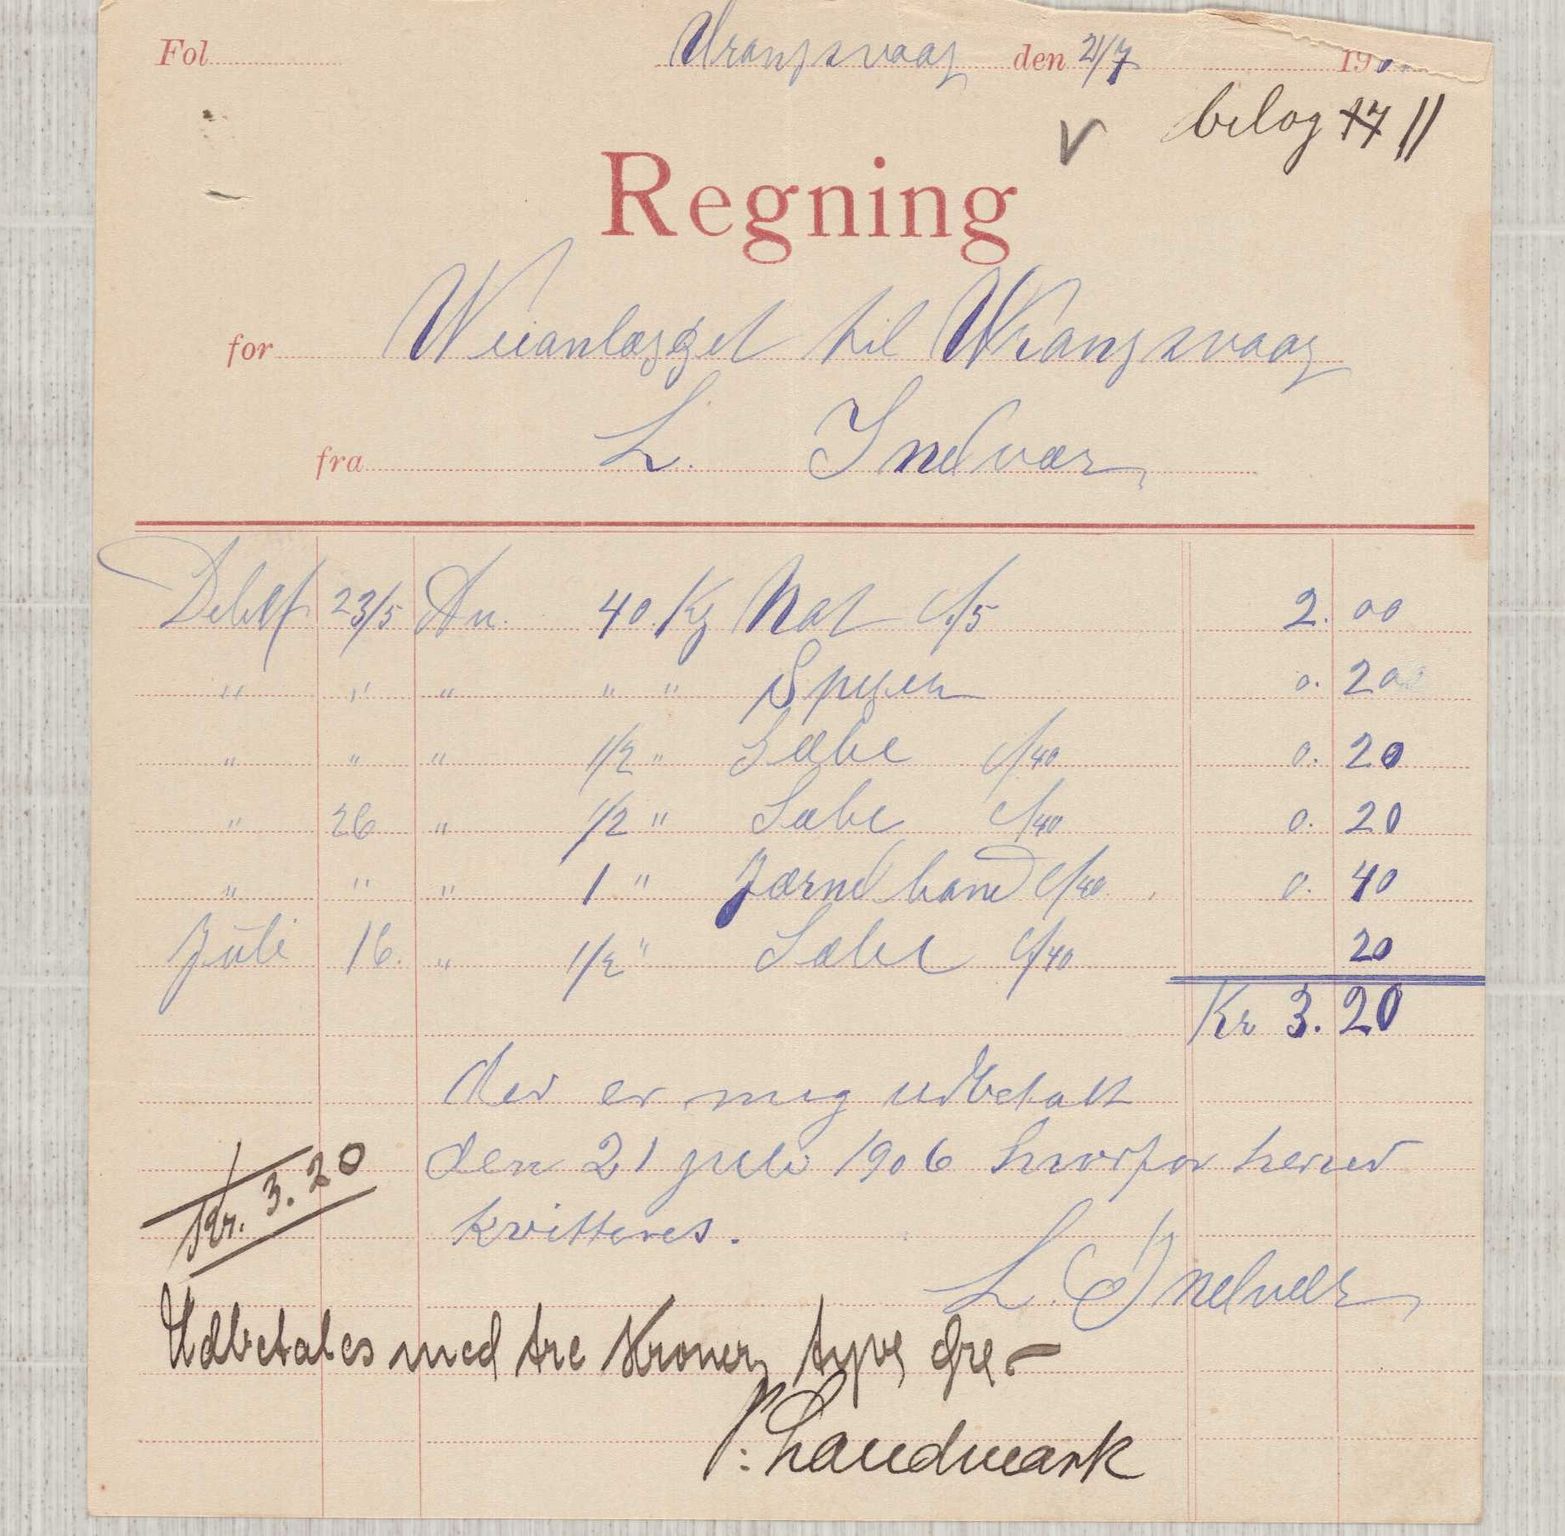 Fol Vrangsvaag den 21/7 190
V bilag 17 11
Regning
for Veianlægget til Vrangsvaag
fra L. Indvær
Debet 23/5 An. 40 Kg Nat c/5 2.00
" " " " " 0.20
" " " 1/2 " Sæbe c/40 0.20
" 26 " 1/2 " Sæbe c/40 0.20
" " " 1 " Jærnd baand c/40 0.40
Juli 16. " 1/2 " Sæbe c/40 20
Kr 3.20
der er mig udbetalt
den 21 juli 1906 hvorfor herved
Kr. 3.20
kvitteres.
L. Indvær
Udbetales med tre Kroner, tyve Øre -
P. Landmark